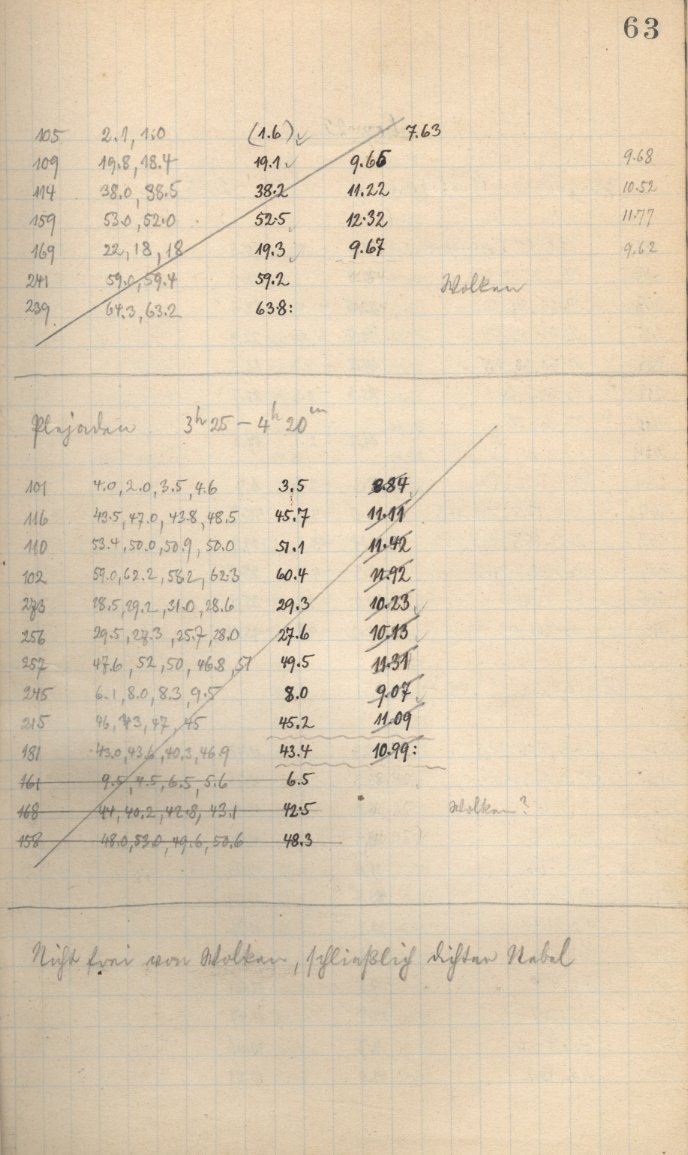 63
105 2.1, 1.0 (1.6) 7.63
109 19.8, 18.4 19.1 9.65 9.68
114 38.0, 38.5 38.2 11.22 10.52
159 53.0, 52.0 52.5 12.32 11.77
169 22, 18, 18 19.3 9.67 9.62
241 59.0, 59.4 59.2 Wolken
239 64.3, 63.2 63.8:
Plejaden 3h 25 – 4h 20m
101 4.0, 2.0, 3.5, 4.6 3.5 8.84
116 43.5, 47.0, 43.8, 48.5 45.7 11.11
110 53.4, 50.0, 50.9, 50.0 51.1 11.42
102 59.0, 62.2, 58.2, 62.3 60.4 11.92
273 28.5, 29.2, 31.0, 28.6 29.3 10.23
256 29.5, 27.3, 25.7, 28.0 27.6 10.13
257 47.6, 52, 50, 46.8, 51 49.5 11.31
245 6.1, 8.0, 8.3, 9.5 8.0 9.07
215 46, 43, 47, 45 45.2 11.09
181 43.0, 43.6, 40.3, 46.9 43.4 10.99:
161 9.5, 4.5, 6.5, 5.6 6.5
168 44, 40.2, 42.8, 43.1 42.5 Wolken?
158 48.0, 53.0, 49.6, 50.6 48.3
Nicht frei von Wolken, schließlich dichter Nebel